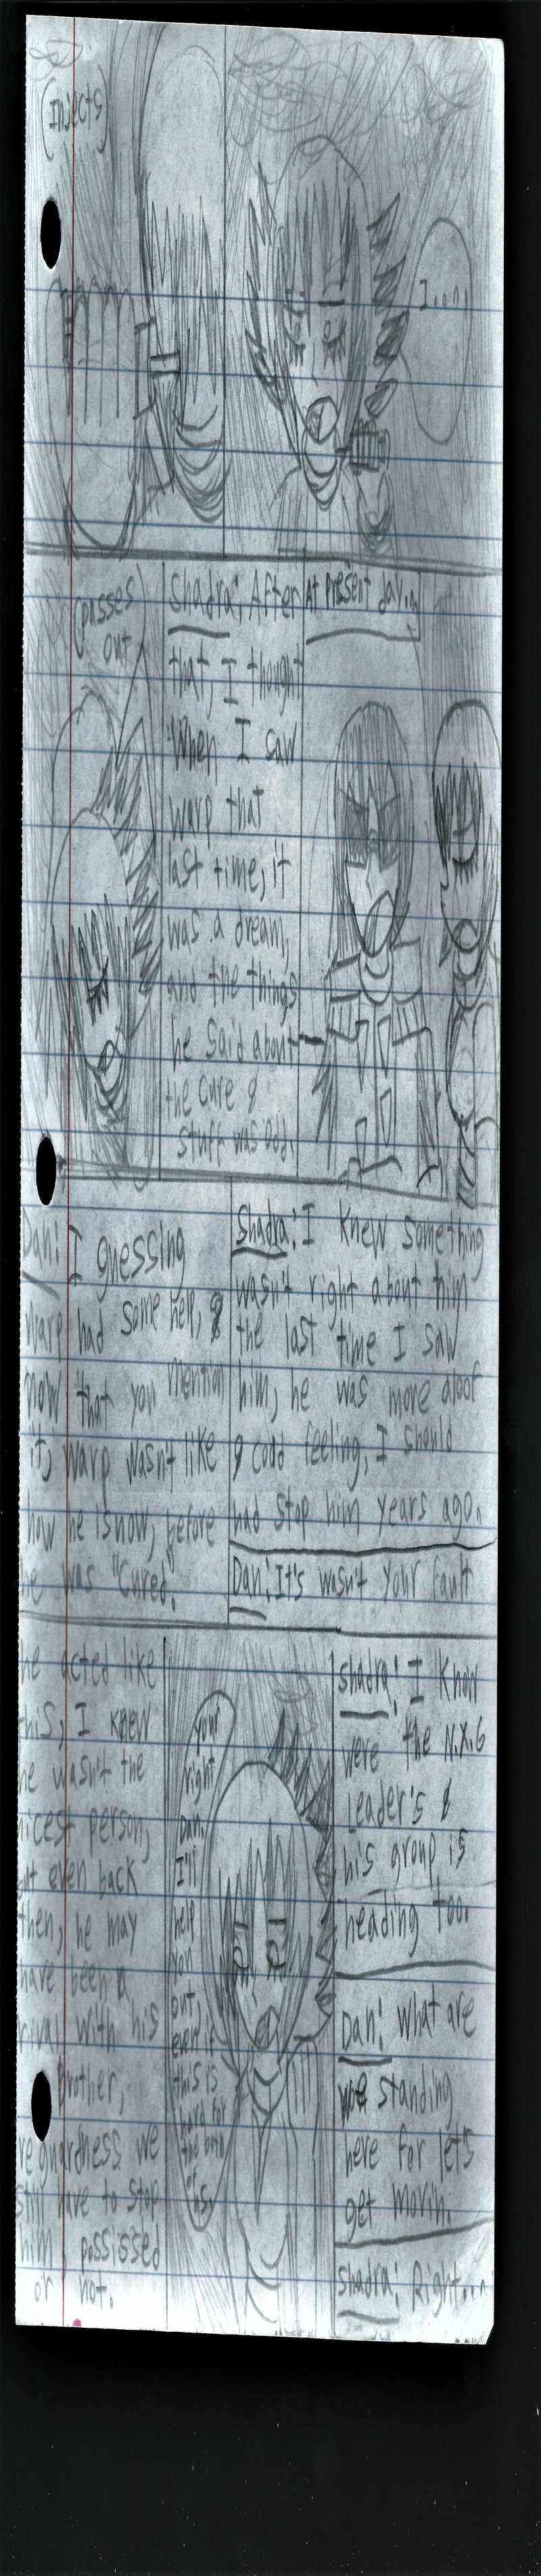 (Injects)
I....
(passes
out)
Shadra: After
that, I thought
When I saw
warp that
last time, it
was a dream,
and the things
he said about
the cure &
stuff was odd.
At present day...
Dan: I guessing
warp had some help, &
now that you mention
it, warp wasn't like
how he is now, before
he was "Cured".
Shadra: I knew something
wasn't right about him
the last time I saw
him, he was more aloof
& codd feeling, I should
had stop him years ago.
Dan: It's wasn't your fault
he acted like
this, I knew
he wasn't the
nicest person,
but even back
then, he may
have been a
rival with his
brother,
reguardness we
still have to stop
him possissed
or not.
your
right
Dan,
I'll
help
you
out,
even if
this is
hard for
the both
of
us.
Shadra: I know
were the N.X.G
Leader's &
his group is
heading too.
Dan: What are
we standing
here for let's
get movin.
Shadra: Right...